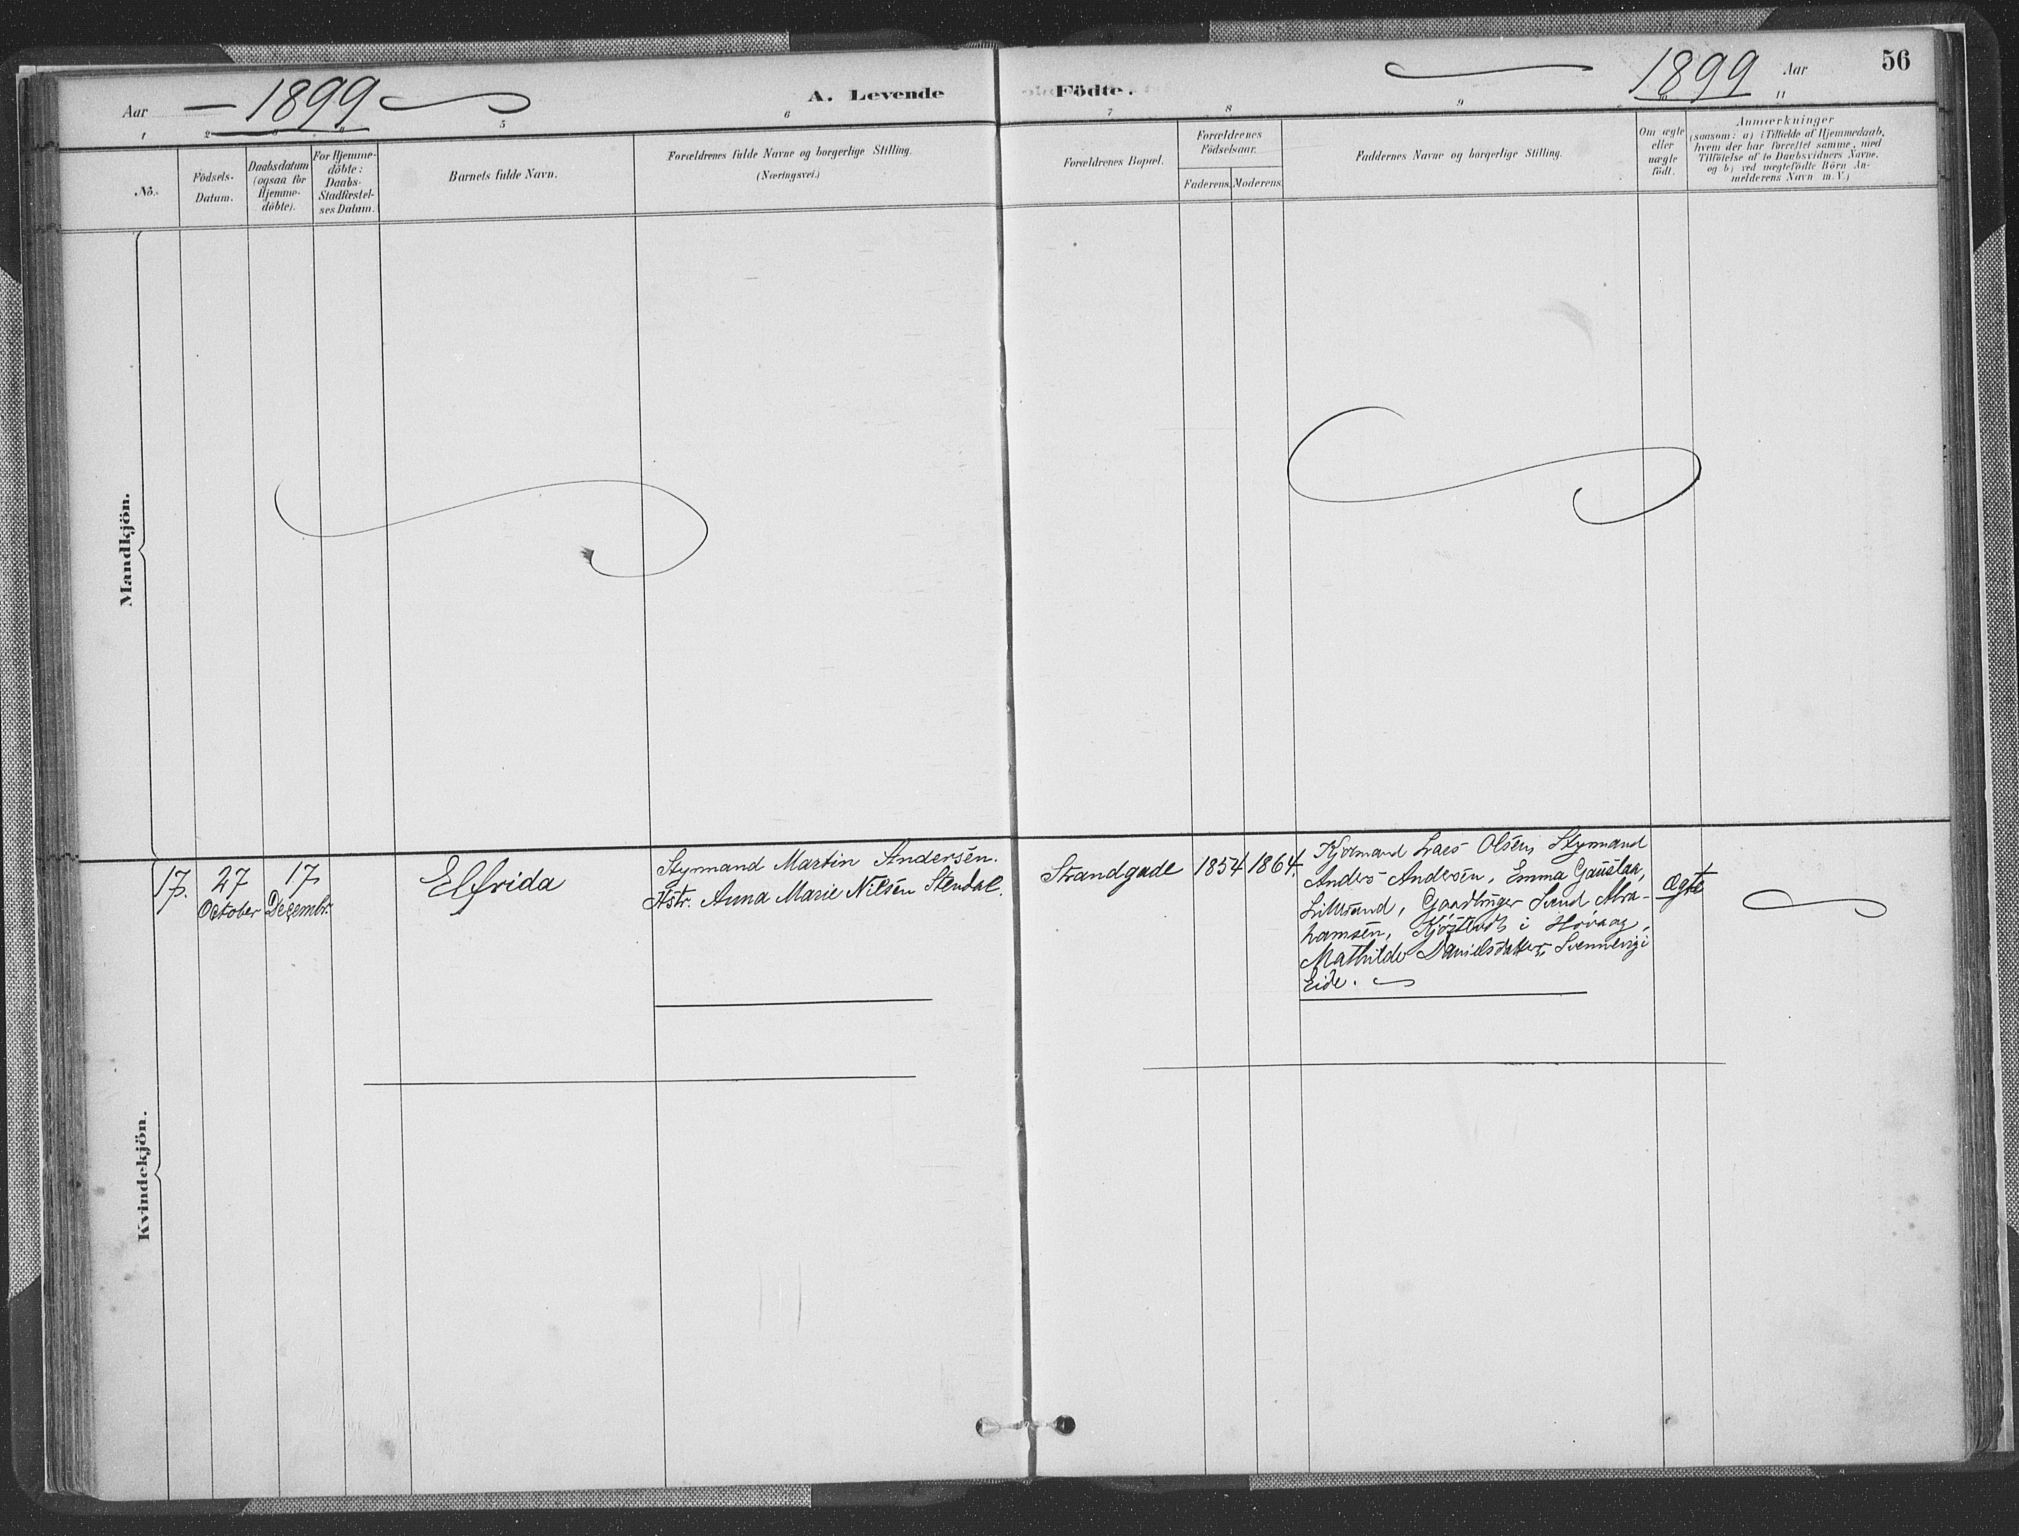 Aar — 1899
A. Levende Födte.
1899 Aar 56
1 2 3 4 5 6 7 8 9 10 11
No.
Födsels-
Datum.
Daabsdatum
(ogsaa for
Hjemme-
döbte).
For Hjemme-
döbte:
Daabs-
Stadfæstel-
ses Datum.
Barnets fulde Navn.
Forældrenes fulde Navne og borgerlige Stilling.
(Næringsvei.)
Forældrenes Bopæl.
Forældrenes
Födselsaar.
Faderens. Moderens.
Faddernes Navne og borgerlige Stilling.
Om ægte
eller
uægte
födt.
Anmærkninger
(saasom: a) i Tilfælde af Hjemmedaab,
hvem der har forrettet samme, med
Tilföielse af to Daabsvidners Navne,
og b) ved uægtefödte Börn An-
melderens Navn m. V.)
Mandkjön.
Kvindekjön.
17.
27
October
17
Decembr.
Elfrida
Styrmand Martin Andersen.
Hstr. Anna Marie Nilsen Stendal.
Strandgade
1854
1864.
Lars Olsen, Styrmand
Anders Andersen, Emma Gauslaa,
Lillesand, Gaardbruger Svend Abra-
hamsen, i Høvaag,
Mathilde Danielsdatter, Svennevig i
Eide.
Ægte